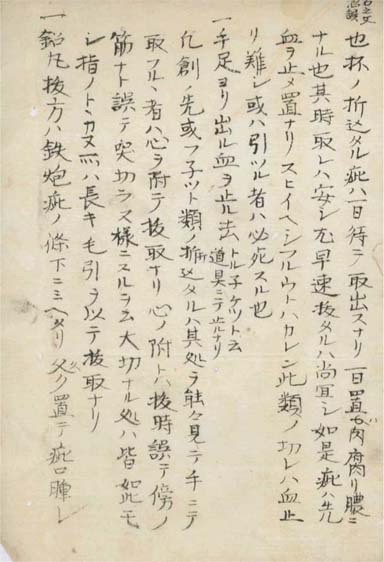 也杯ノ折込タル疵ハ一日待テ取出スナリ一日置ハ肉腐リ膿ニ
ナル也其時取レハ安シ尤早速抜タルハ尚宜シ如是疵ハ先
血ヲ止メ置ナリスヒイヘシフルウトハカレン此類ノ切レハ血止
リ難シ或ハ引ツル者ハ必死スル也
一手足ヨリ出ル血ヲ止ル法トルチケツト云道具ニテ止ルナリ
化創ノ先或フ子ツト類ノ折込タルハ其処ヲ能々見テ手ニテ
取フル者ハ心ヲ附テ抜取ナリ心ノ附トハ抜時誤テ傍ノ
筋ナト誤テ突切ラス様ニスルヲ云大切ナル処ハ皆如此モ
シ指ノトヽカヌ所ハ長キ毛引ヲ以テ抜取ナリ
一鉛丸抜方ハ鉄炮疵ノ條下ニミヘタリ久ク置テ疵口腫レ